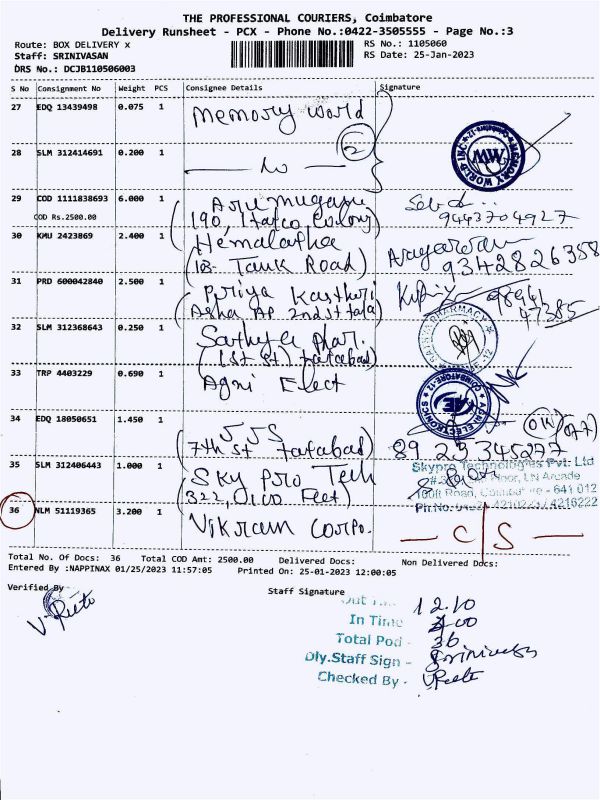 THE PROFESSIONAL COURIERS, Coimbatore
Delivery Runsheet - PCX - Phone No.:0422-3505555 - Page No.:3
Route: BOX DELIVERY x
RS No.: 1105060
Staff: SRINIVASAN
RS Date: 25-Jan-2023
DRS No.: DCJB110506003
S No Consignment No Weight PCS Consignee Details Signature
27 EDQ 13439498 0.075 1 Memory World
28 SLM 312414691 0.200 1 2
MEMORY WORLD INC MW
29 COD 1111838693 6.000 1 Arumugam
COD Rs.2500.00 190, Itatco Colony) 9443704927
30 KMU 2423869 2.400 1 Hemalatha
103- Tank Road) 9342826358
31 PRD 600042840 2.500 1 Priya Kasthuri
2nd st tata 98941 47385
32 SLM 312368643 0.250 1 Sathya
(1st st) tatabad) PHARMACY
33 TRP 4403229 0.690 1 Agni Elect
AGNI ELECTRONIC COIMBATORE-12
34 EDQ 18050651 1.450 1 JJS
7th st tatabad) 89 23 345277
35 SLM 312406443 1.000 1 Sky Pro Tech
(322, 0100 Feet)
Skypro Technologies Pvt: Ltd
Floor, LN Arcade
100ft Road, Coimbatore - 641 012
36 NLM 51119365 3.200 1 Vikram Corpo.
C/S
Total No. Of Docs: 36 Total COD Amt: 2500.00 Delivered Docs: Non Delivered Docs:
Entered By :NAPPINAX 01/25/2023 11:57:05 Printed On: 25-01-2023 12:00:05
Verified By
Staff Signature
12.10
In Time
Total Pod - 36
Dly.Staff Sign - Srinivasan
Checked By -